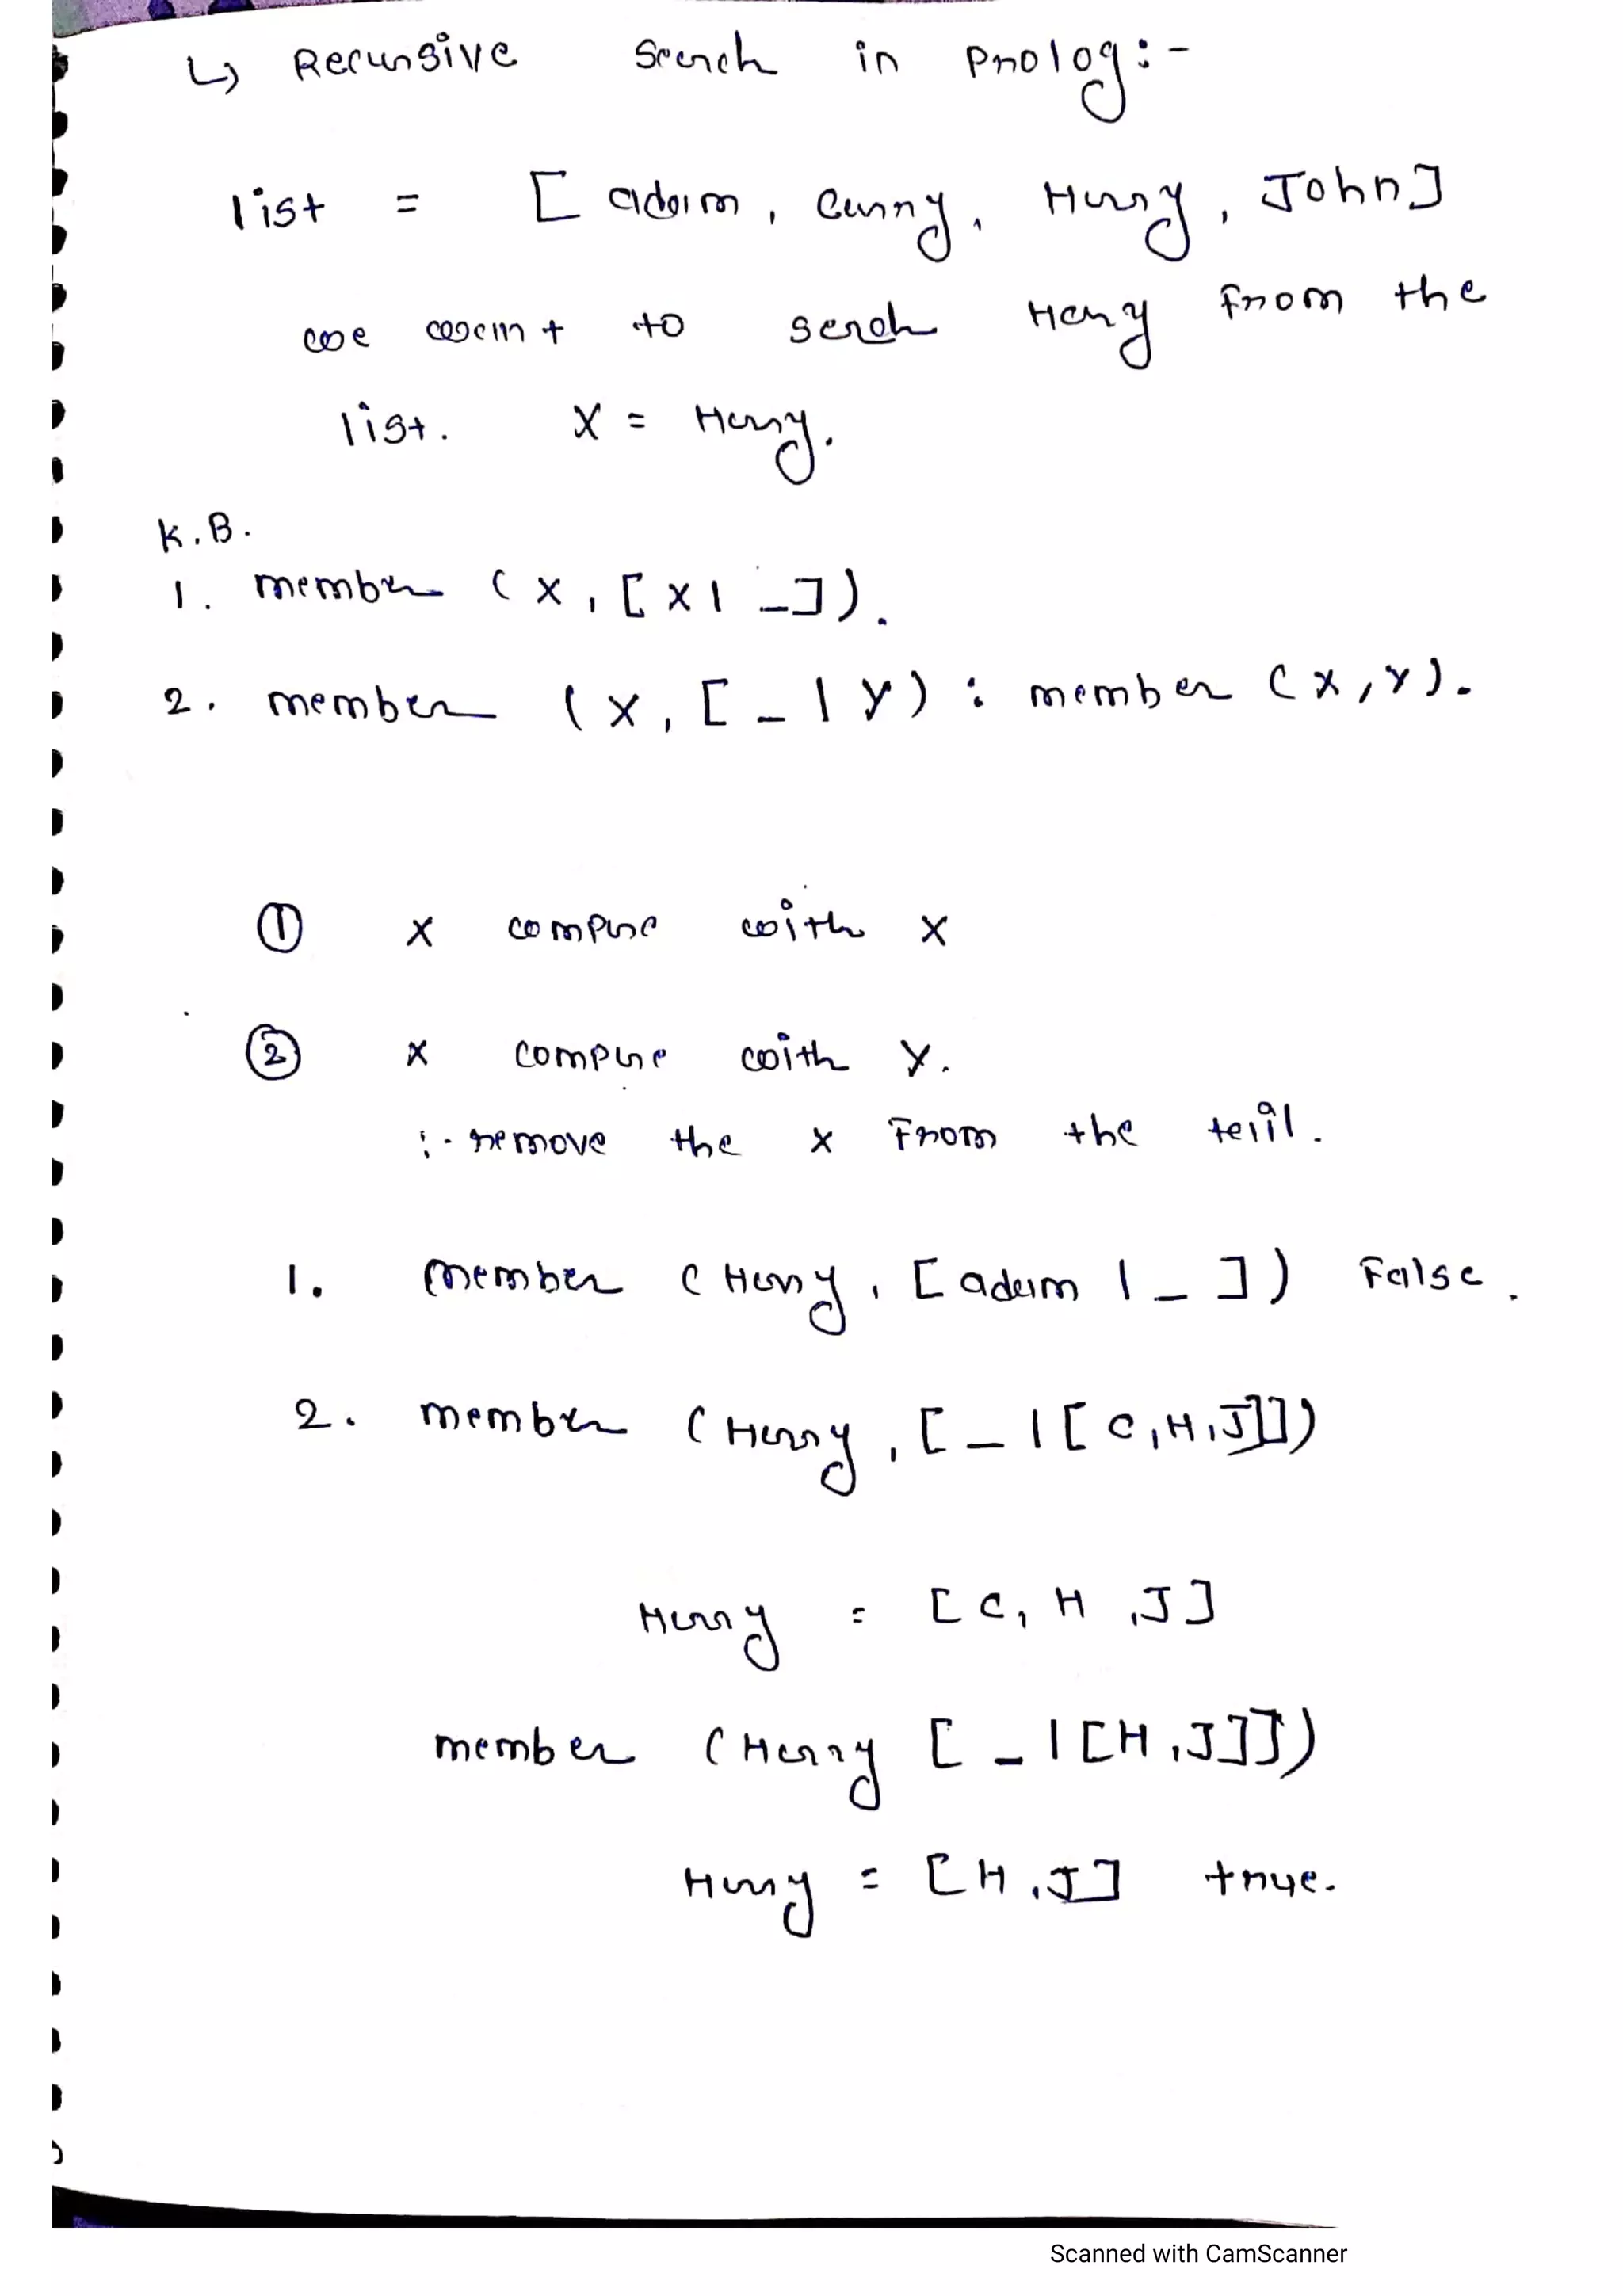 ↳ Recursive Search in Prolog:-
list = [ adam, Carry, Harry, John]
we want to serch Harry from the
list. X = Harry.
K.B.
1. member (x, [x| _]).
2. member (x, [ _ | y) : member (x,y).
① x compare with x
② x compare with y.
:- remove the x from the tail.
1. member (Harry, [ adam | _ ]) False.
2. member (Harry, [ _ | [ C,H,J]])
Harry = [C, H ,J]
member (Harry [ _ | [H,J]])
Harry = [H,J] true.
Scanned with CamScanner